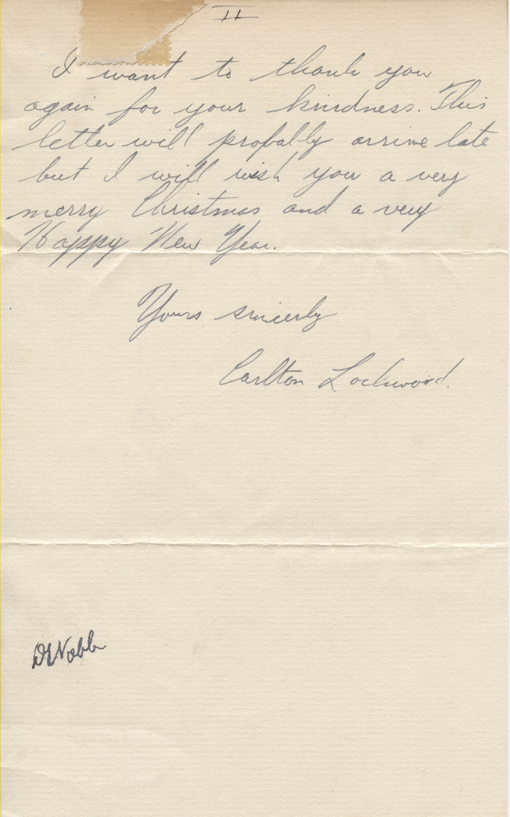 II
I want to thank you
again for your kindness. This
letter will probally arrive late
but I will wish you a very
merry Christmas and a very
Happy New Year.
Yours sincerly
Carlton Lockwood.